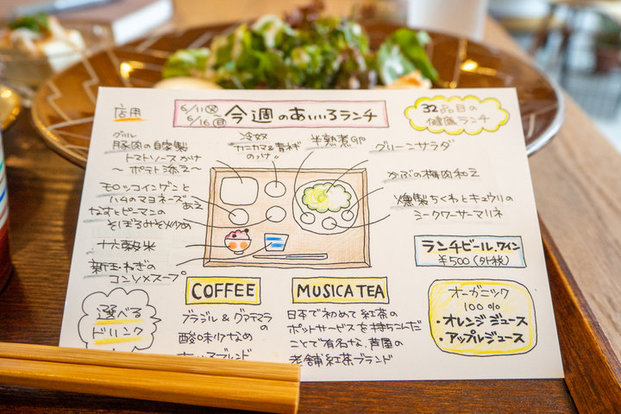 店用
6/11㊋
6/16㊐
今週のあいいろランチ
32品目の
健康ランチ
グリル
豚肉の自家製
トマトソースかけ
～ポテト添え～
冷奴
カニカマ&青ねぎ
のっけ
半熟煮卵
グリーンサラダ
モロッコインゲンと
ハムのマヨネーズあえ
なすとピーマンの
そぼろみそ炒め
かぶの梅肉和え
燻製ちくわとキュウリの
シークワーサーマリネ
十六穀米
新玉ねぎの
コンソメスープ
ランチビール、ワイン
¥500(外税)
選べる
ドリンク
COFFEE
ブラジル&グアテマラ
の
酸味少なめ
MUSICA TEA
日本で初めて紅茶の
ポットサービスを
ことで有名な、芦屋の
老舗紅茶ブランド
オーガニック
100%
・オレンジジュース
・アップルジュース